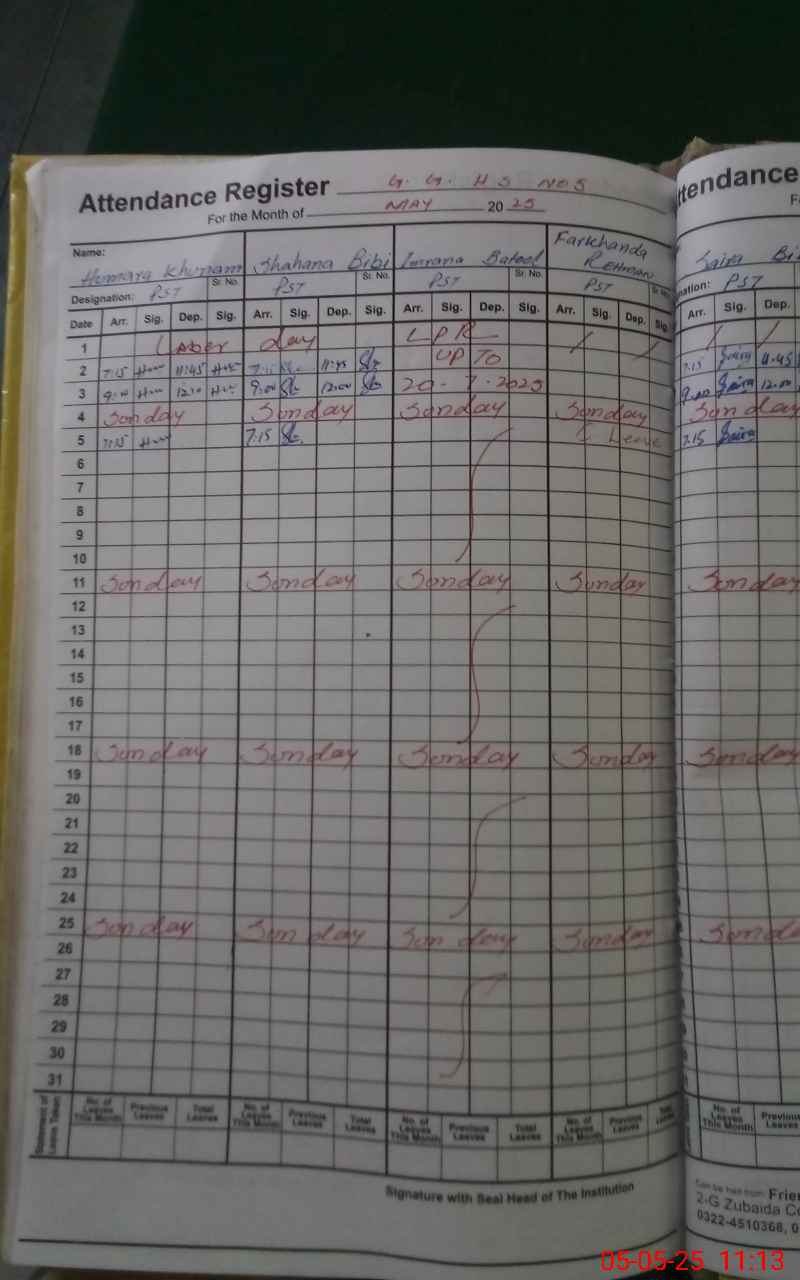 Attendance Register G. G. H S NO 5
For the Month of MAY 20 25
Name: Humara Khunam Shahana Bibi Imrana Batool Farkhanda Rehman
Sr. No. Sr. No. Sr. No.
Designation: PST PST PST PST
Date Arr. Sig. Dep. Sig. Arr. Sig. Dep. Sig. Arr. Sig. Dep. Sig. Arr. Sig. Dep. Sig.
1 Laber day LPR
2 7:15 11:45 7:15 11:45 UP TO
3 9:00 12:00 9:00 12:00 20-7-2025
4 Sonday Sonday Sonday Sonday
5 7:15 7:15 C Leave
6
7
8
9
10
11 Sonday Sonday Sonday Sonday
12
13
14
15
16
17
18 Sonday Sonday Sonday Sonday
19
20
21
22
23
24
25 Sonday Sonday Sonday Sonday
26
27
28
29
30
31
Statement of Leave Taken
No. of Leaves This Month Previous Leaves Total Leaves No. of Leaves This Month Previous Leaves Total Leaves No. of Leaves This Month Previous Leaves Total Leaves No. of Leaves This Month Previous Leaves Total
Signature with Seal Head of The Institution
ttendance
Saira Bi
nation: PST
Arr. Sig. Dep.
7:15 Saira 11:45
9:00 Saira 12:00
Sonday
7:15 Saira
Sonday
Sonday
Sonda
No. of Leaves This Month Previous Leaves
Can be had from: Frien
2-G Zubaida Co
0322-4510368, 0
05-05-25 11:13